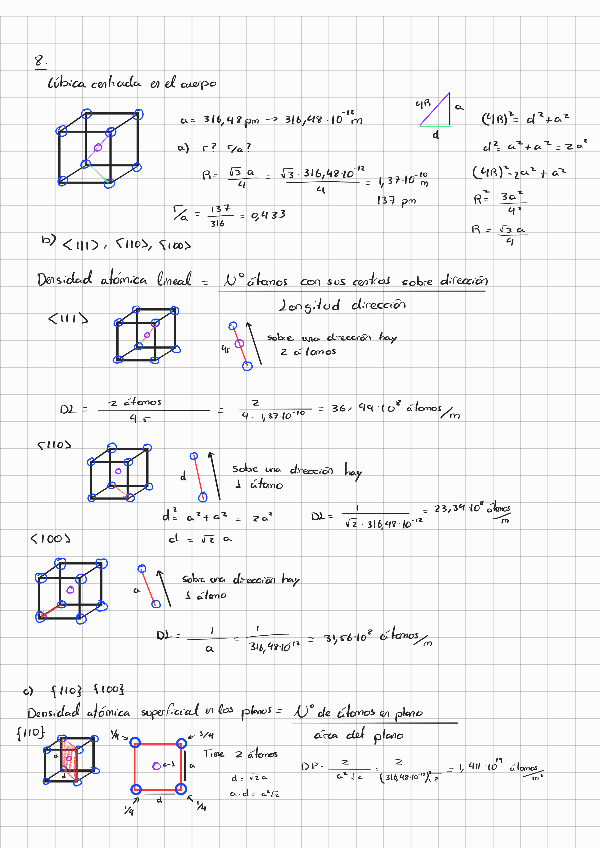 8.
Cúbica centrada en el cuerpo
a = 316,48 pm -> 316,48·10^-12 m
a) r? r/a?
R = √3 a / 4 = √3 · 316,48·10^-12 / 4 = 1,37·10^-10 m
137 pm
r/a = 137/316 = 0,433
4R a
d
(4R)² = d² + a²
d² = a² + a² = 2a²
(4R)² = 2a² + a²
R² = 3a²/4²
R = √3 a / 4
b) <111>, <110>, <100>
Densidad atómica lineal = Nº átomos con sus centros sobre dirección / Longitud dirección
<111>
4r
sobre una dirección hay
2 átomos
DL = 2 átomos / 4 r = 2 / 4 · 1,37·10^-10 = 36,49·10^8 átomos/m
<110>
d
sobre una dirección hay
1 átomo
d² = a² + a² = 2a²
d = √2 a
DL = 1 / √2 · 316,48·10^-12 = 23,34·10^8 átomos/m
<100>
a
sobre una dirección hay
1 átomo
DL = 1 / a = 1 / 316,48·10^-12 = 31,56·10^8 átomos/m
c) {110} {100}
Densidad atómica superficial en los planos = Nº de átomos en plano / área del plano
{110}
1/4 1/4
a
d
1/4 1/4
Tiene 2 átomos
d = √2 a
a·d = a²√2
DP = 2 / a²√2 = 2 / (316,48·10^-12)²·√2 = 1,411·10^19 átomos/m²